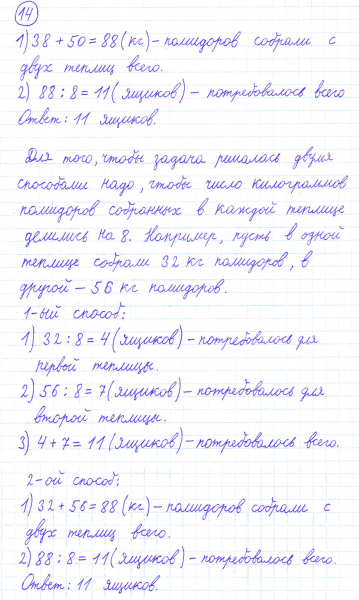 14
1) 38 + 50 = 88 (кг) – помидоров собрали с
двух теплиц всего.
2) 88 : 8 = 11 (ящиков) – потребовалось всего
Ответ: 11 ящиков.
Для того, чтобы задача решалась двумя
способами надо, чтобы число килограммов
помидоров собранных в каждой теплице
делились на 8. Например, пусть в одной
теплице собрали 32 кг помидоров, в
другой – 56 кг помидоров.
1-ый способ:
1) 32 : 8 = 4 (ящиков) – потребовалось для
первой теплицы.
2) 56 : 8 = 7 (ящиков) – потребовалось для
второй теплицы.
3) 4 + 7 = 11 (ящиков) – потребовалось всего.
2-ой способ:
1) 32 + 56 = 88 (кг) – помидоров собрали с
двух теплиц всего.
2) 88 : 8 = 11 (ящиков) – потребовалось всего.
Ответ: 11 ящиков.